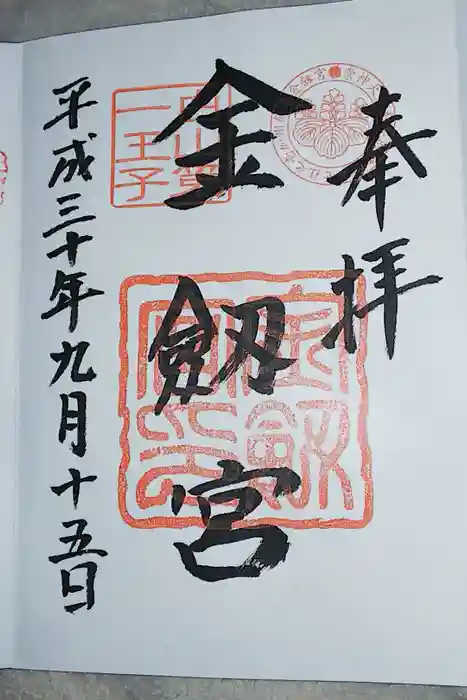 奉拝
金劔宮
平成三十年九月十五日
白山第一王子
金劔宮之印